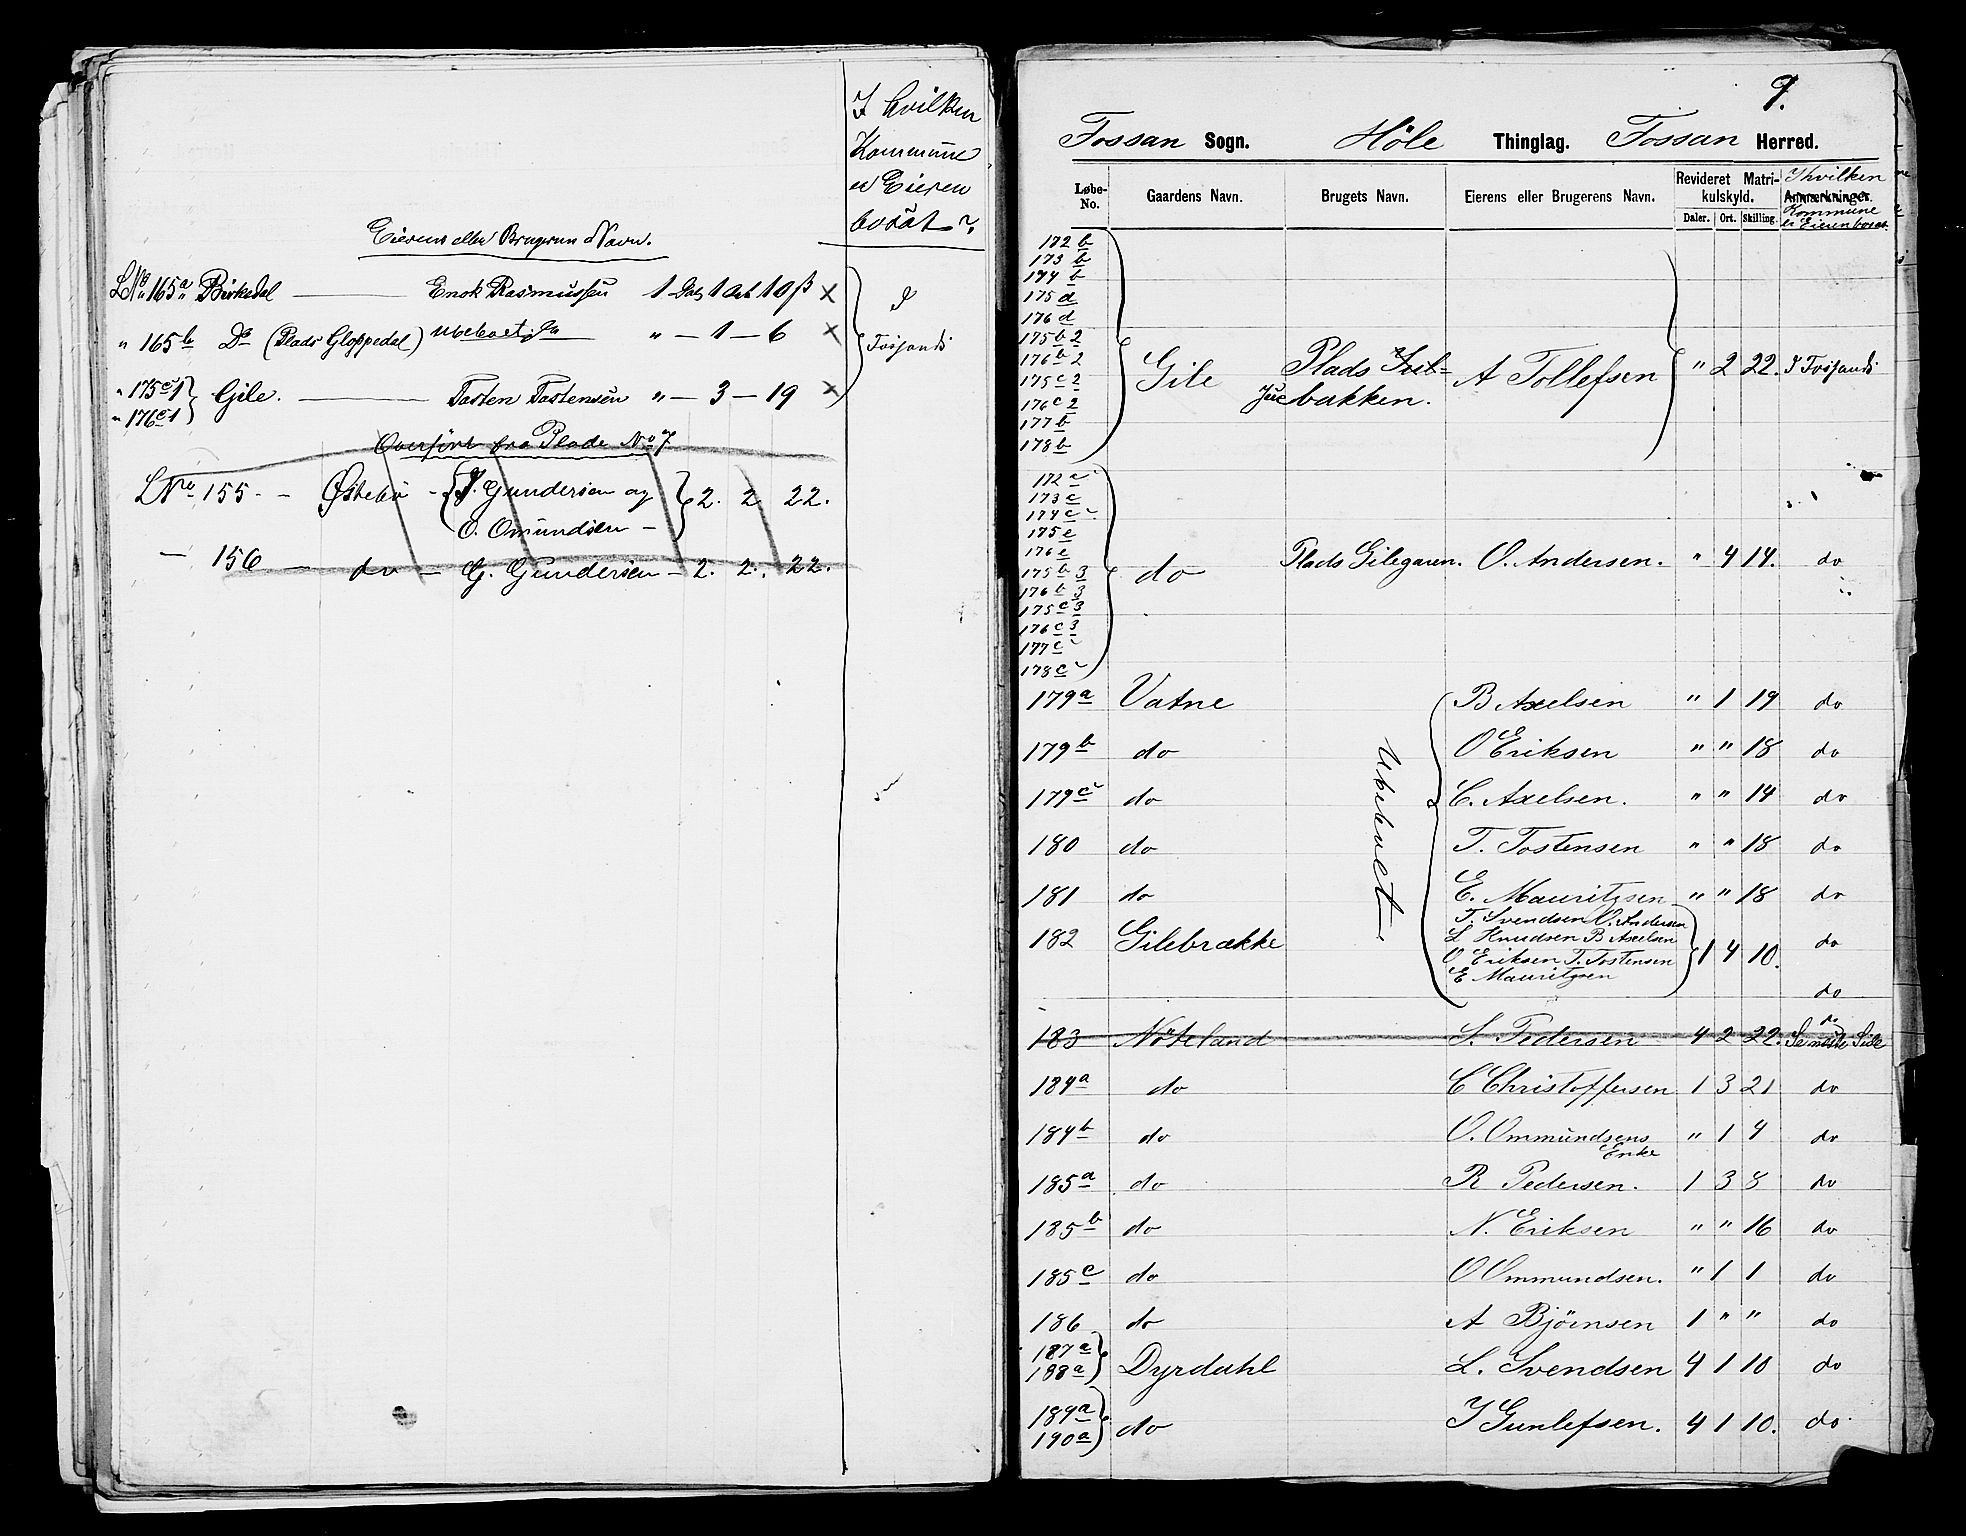 I hvilken
Kommune
er Eieren
bosat?
Eierens eller Brugerens Navn.
LNo 165a Birkedal Enok Rasmussen 1 Dal 1 Ort 10 ß ×
" 165b Do (Plads Gloppedal) ubeboet " — 1 — 6 × I Fossand
" 175c1 Gile. Tosten Tostensen " — 3 — 19 ×
" 176c1
Overført fra Plade No 7
LNro 155 - - Østebø - J. Gundersen og 2. 2 22.
O. Omundsen -
— 156 — do — G. Gundersen - 2. 2. 22.
9.
Fossan Sogn. Höle Thinglag. Fossan Herred.
Løbe-No. Gaardens Navn. Brugets Navn. Eierens eller Brugerens Navn. Revideret Matrikulskyld. Anmærkninger.
I hvilken Kommune er Eieren bosat
Daler. Ort. Skilling.
172 b
173 b
174 b
175 d
176 d
175 b 2
176 b 2
175 c 2
176 c 2
177 b
178 b
Gile Plads Jue bakken. A Tollefsen " 2 22. I Fossand
172 c
173 c
174 c
175 e
176 e
175 b 3
176 b 3
175 c 3
176 c 3
177 c
178 c
do Plads Gilegaren. O. Andersen. " 4 14. do
179 a Vatne B Axelsen " 1 19 do
179 b do O Eriksen " " 18 do
179 c do C. Axelsen. " " 14 do
Ubeboet
180 do T. Tostensen " " 18 do
181 do E. Mauritzsen " " 18 do
182 Gilebrække T. Svendsen O. Andersen
L Knudsen B Axelsen
O Eriksen T. Tostensen 1 4 10. do
E Mauritzsen
do
183 Nöteland S. Pedersen 4 2 22. do Se næste Side
184 a do C Christoffersen 1 3 21 do
184 b do O. Ommundsens Enke " 1 4 do
185 a do R Pedersen. 1 3 8 do
185 b do N. Eriksen " " 16 do
185 c do O Ommundsen. " 1 1 do
186 do A Björnsen 1 " " do
187 a
188 a Dyrdahl L. Svendsen 4 1 10 do
189 a
190 a do I Gunlefsen. 4 1 10. do.